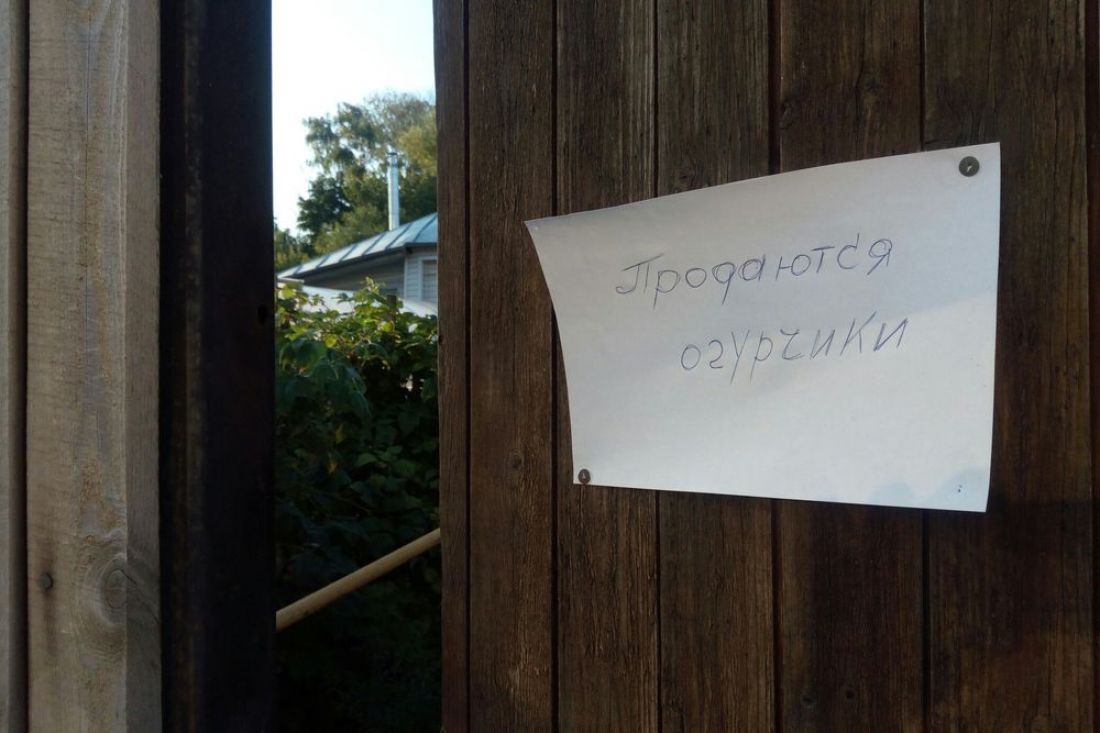 Продаются
огурчики